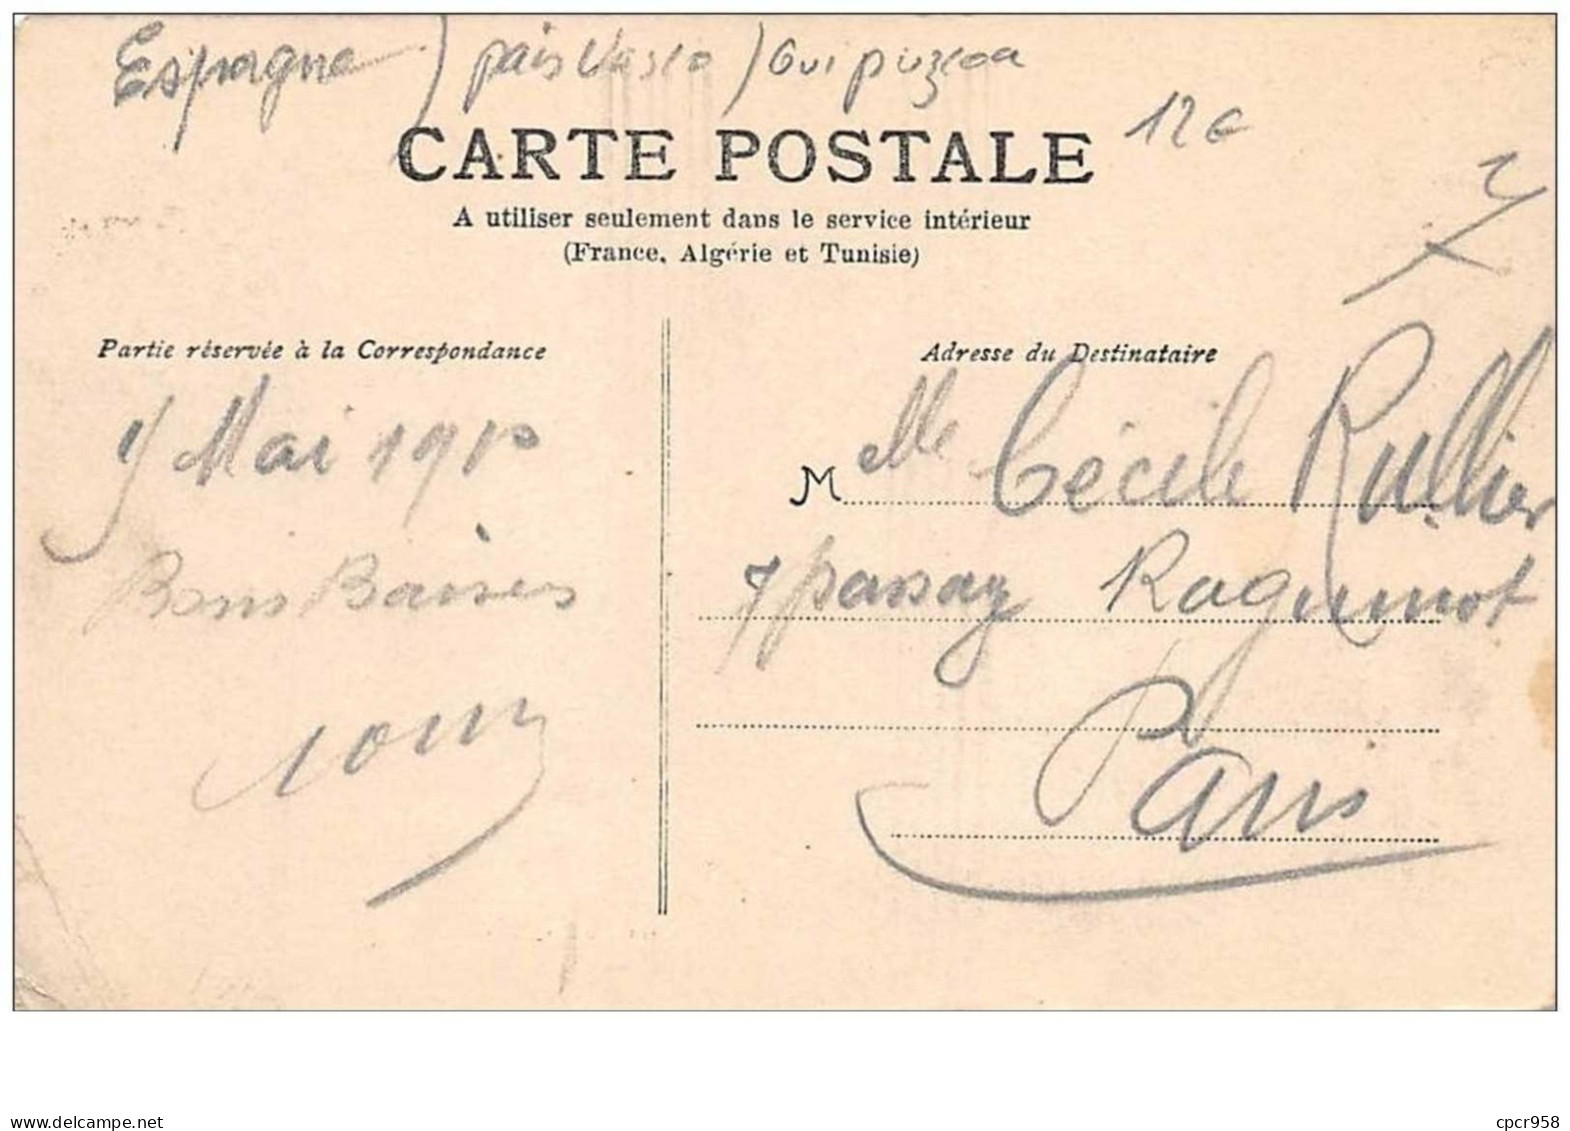 Espagne / pais Vasco / Guipuzcoa
12€
CARTE POSTALE
A utiliser seulement dans le service intérieur
(France, Algérie et Tunisie)
Partie réservée à la Correspondance
Adresse du Destinataire
Mai 1910
Bons Baisers
M elle Cécile Rullier
7 passag Raguinot
Paris
www.delcampe.net
cpcr958